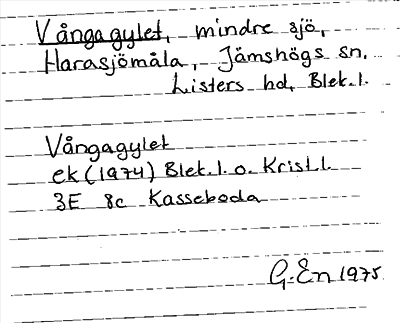 Vångagylet, mindre sjö,
Harasjömåla, Jämshögs sn.
Listers hd, Blek.l.
Vångagylet
ek (1974) Blek.l. o. Krist.l.
3E 8c Kasseboda
G. En 1975